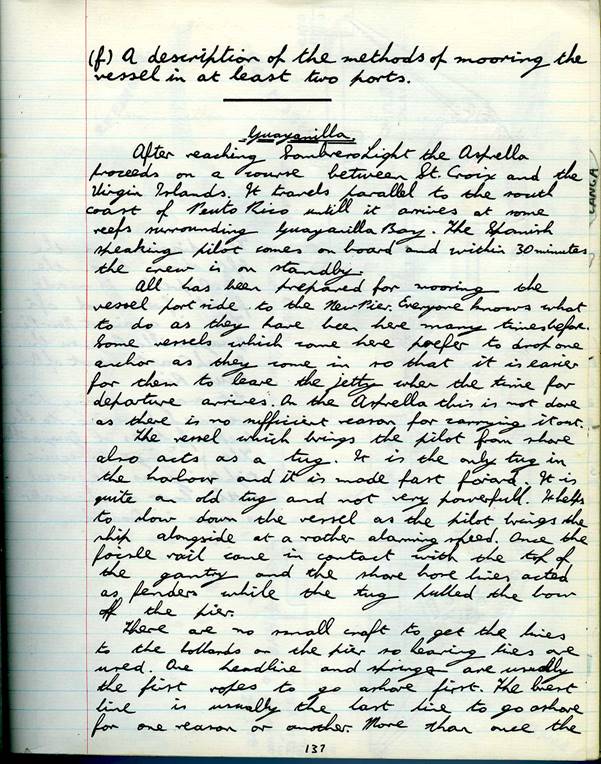 (f.) A description of the methods of mooring the
vessel in at least two ports.
Guayanilla.
After reaching Sombrero Light the Asprella
proceeds on a course between St. Croix and the
Virgin Islands. It travels parallel to the south
coast of Peuto Rico untill it arrives at some
reefs surrounding Guayanilla Bay. The Spanish
speaking pilot comes on board and within 30 minutes
the crew is on standby.
All has been prepared for mooring the
vessel port side to the New Pier. Everyone knows what
to do as they have been here many times before.
Some vessels which come here prefer to drop one
anchor as they come in so that it is easier
for them to leave the jetty when the time for
departure arrives. On the Asprella this is not done
as there is no sufficient reason for carrying it out.
The vessel which brings the pilot from shore
also acts as a tug. It is the only tug in
the harbour and it is made fast forard. It is
quite an old tug and not very powerfull. It helps
to slow down the vessel as the pilot brings the
ship alongside at a rather alarming speed. Once the
focsle rail came in contact with the top of
the gantry and the shore hose lines acted
as fenders while the tug pulled the bow
off the pier.
There are no small craft to get the lines
to the bollards on the pier so heaving lines are
used. One headline and springs are usually
the first ropes to go ashore first. The brest
line is usually the last line to go ashore
for one reason or another. More than once the
137